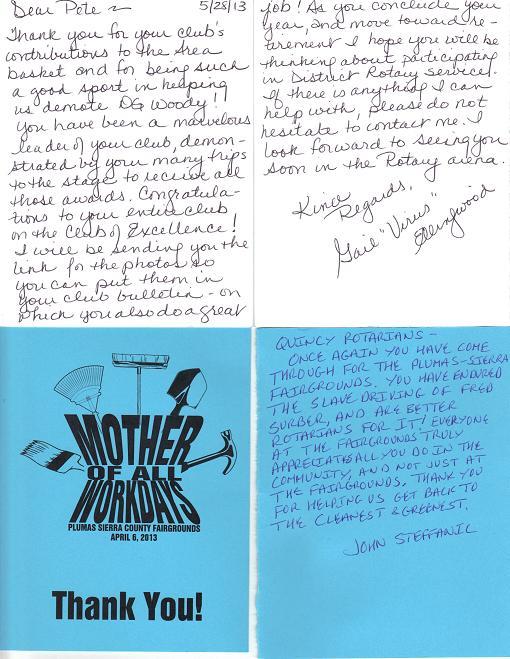 Dear Pete ~ 5/28/13
Thank you for your club's
contributions to the Area
basket and for being such
a good sport in helping
us demote DG Woody!!
You have been a marvelous
leader of your club, demon-
strated by your many trips
to the stage to receive all
those awards. Congratula-
tions to your entire club
on the Club of Excellence!
I will be sending you the
link for the photos so
you can put them in
your club bulletin - on
which you also do a great
job! As you conclude your
year, and move toward re-
tirement I hope you will be
thinking about participating
in District Rotary service.
If there is anything I can
help with, please do not
hesitate to contact me. I
look forward to seeing you
soon in the Rotary arena.
Kind
Regards,
Gail "Virus"
Ellingwood
MOTHER
OF ALL
WORKDAYS
PLUMAS SIERRA COUNTY FAIRGROUNDS
APRIL 6, 2013
Thank You!
QUINCY ROTARIANS -
ONCE AGAIN YOU HAVE COME
THROUGH FOR THE PLUMAS-SIERRA
FAIRGROUNDS. YOU HAVE ENDURED
THE SLAVE DRIVING OF FRED
SURBER, AND ARE BETTER
ROTARIANS FOR IT! EVERYONE
AT THE FAIRGROUNDS TRULY
APPRECIATES ALL YOU DO IN THE
COMMUNITY, AND NOT JUST AT
THE FAIRGROUNDS. THANK YOU
FOR HELPING US GET BACK TO
THE CLEANEST & GREENEST.
JOHN STEFFANIC